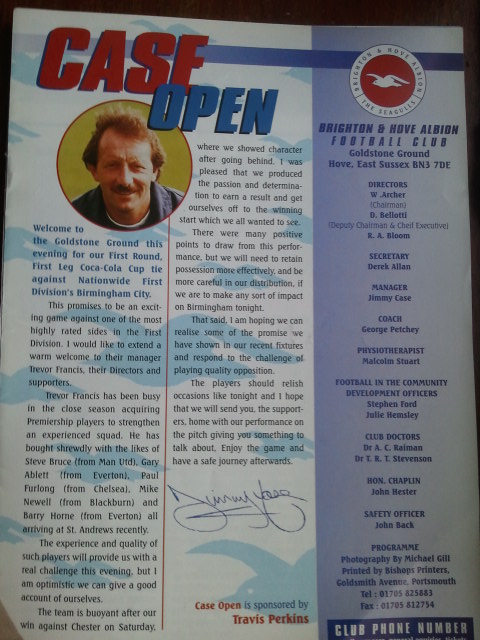 CASE
OPEN
Welcome to
the Goldstone Ground this
evening for our First Round,
First Leg Coca-Cola Cup tie
against Nationwide First
Division's Birmingham City.
This promises to be an excit-
ing game against one of the most
highly rated sides in the First
Division. I would like to extend a
warm welcome to their manager
Trevor Francis, their Directors and
supporters.
Trevor Francis has been busy
in the close season acquiring
Premiership players to strengthen
an experienced squad. He has
bought shrewdly with the likes of
Steve Bruce (from Man Utd), Gary
Ablett (from Everton), Paul
Furlong (from Chelsea), Mike
Newell (from Blackburn) and
Barry Horne (from Everton) all
arriving at St. Andrews recently.
The experience and quality of
such players will provide us with a
real challenge this evening, but I
am optimistic we can give a good
account of ourselves.
The team is buoyant after our
win against Chester on Saturday,
where we showed character
after going behind. I was
pleased that we produced
the passion and determina-
tion to earn a result and get
ourselves off to the winning
start which we all wanted to see.
There were many positive
points to draw from this perfor-
mance, but we will need to retain
possession more effectively, and be
more careful in our distribution, if
we are to make any sort of impact
on Birmingham tonight.
That said, I am hoping we can
realise some of the promise we
have shown in our recent fixtures
and respond to the challenge of
playing quality opposition.
The players should relish
occasions like tonight and I hope
that we will send you, the support-
ers, home with our performance on
the pitch giving you something to
talk about. Enjoy the game and
have a safe journey afterwards.
Jimmy Case
Case Open is sponsored by
Travis Perkins
BRIGHTON & HOVE ALBION
THE SEAGULLS
BRIGHTON & HOVE ALBION
FOOTBALL CLUB
Goldstone Ground
Hove, East Sussex BN3 7DE
DIRECTORS
W .Archer
(Chairman)
D. Bellotti
(Deputy Chairman & Cheif Executive)
R. A. Bloom
SECRETARY
Derek Allan
MANAGER
Jimmy Case
COACH
George Petchey
PHYSIOTHERAPIST
Malcolm Stuart
FOOTBALL IN THE COMMUNITY
DEVELOPMENT OFFICERS
Stephen Ford
Julie Hemsley
CLUB DOCTORS
Dr A. C. Raiman
Dr T. R. T. Stevenson
HON. CHAPLIN
John Hester
SAFETY OFFICER
John Back
PROGRAMME
Photography By Michael Gill
Printed by Bishops Printers,
Goldsmith Avenue, Portsmouth
Tel : 01705 825883
Fax : 01705 812754
CLUB PHONE NUMBER